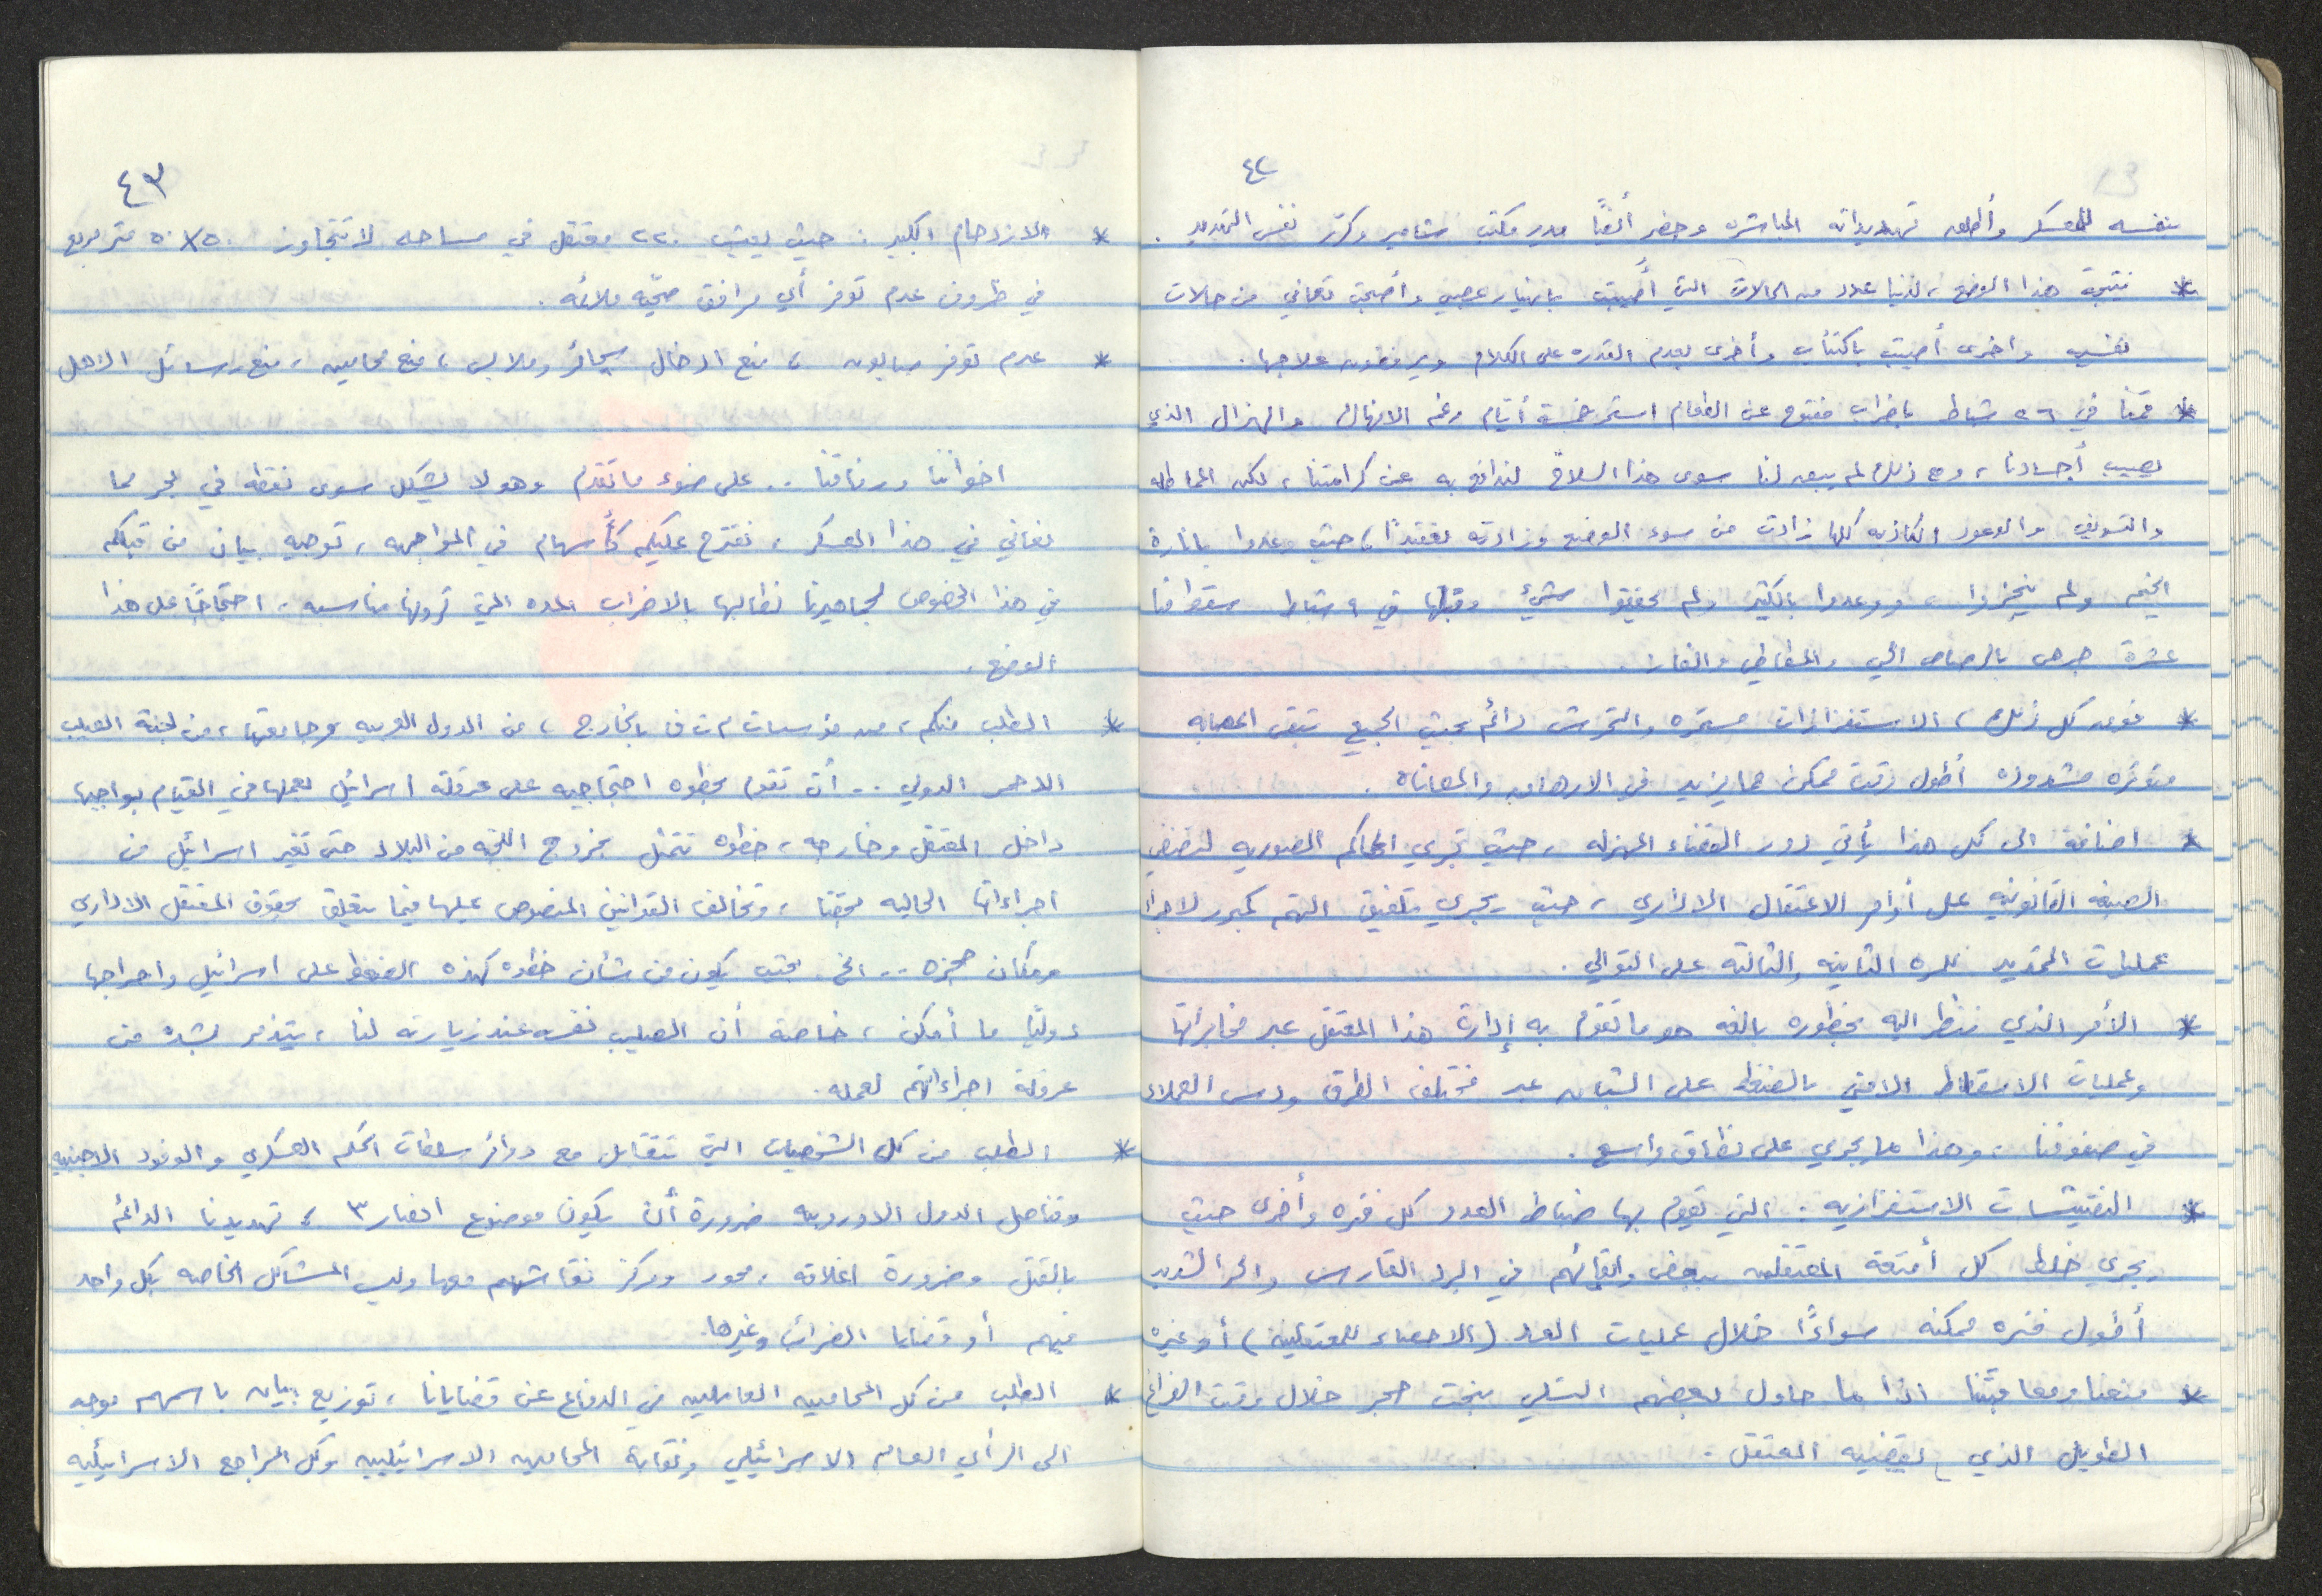 ٤٢
بنفسه للمعسكر وأطلق تهديداته المباشره وحضر أيضًا مدير مكتب شامير وكرر نفس التهديد .
* نتيجة هذا الوضع ، لدينا عدد من الحالات التي أُصيبت بانهيار عصبي وأصبحت تعاني من حالات
نفسيه واخرى أصيبت باكتئاب وأخرى بعدم القدره على الكلام ويرفضون علاجها .
* قمنا في ٢٦ شباط باضراب مفتوح عن الطعام استمر خمسة أيّام رغم الانهاك والهزال الذي
يصيب أجسادنا ، ومع ذلك لم يبق لنا سوى هذا السلاح لندافع به عن كرامتنا ، لكن المماطله
والتسويف والوعود الكاذبه كلها زادت من سوء الوضع وزادته تعقيدًا ، حيث وعدوا بانارة
الخيم ولم ينجزوا ، ووعدوا بالكثير ولم يحققوا شيئ وقبلها في ٩ شباط سقط منا
عشرة جرحى بالرصاص الحي والمطاطي والغاز .
* فوق كل ذلك ، الاستفزازات مستمره والتحرش دائم بحيث الجميع تبقى اعصابه
متوتره مشدوده أطول وقت ممكن مما يزيد في الارهاق والمعاناة .
* اضافة الى كل هذا يأتي دور القضاء المهزله ، حيث تجري المحاكم الصوريه لتضفي
الصبغه القانونيه على أوامر الاعتقال الاداري ، حيث يجري تلفيق التهم كمبرر لاجراء
عمليات التمديد للمره الثانيه والثالثه على التوالي .
* الأمر الذي ننظر اليه بخطوره بالغه هو ما تقوم به إدارة هذا المعتقل عبر مخابراتها
وعمليات الاسقاط الامني بالضغط على الشباب عبر مختلف الطرق ودس العملاء
في صفوفنا ، وهذا ما يجري على نطاق واسع .
* التفتيشات الاستفزازيه : التي يقوم بها ضباط العدو كل فتره وأخرى حيث
يجري خلط كل أمتعة المعتقلين ببعض وابقائهم في البرد القارس والحر الشديد
أطول فتره ممكنه سواءًا خلال عمليات العد ( الاحصاء للمعتقلين ) أو غيره
* منعنا ومعاقبتنا اذا ما حاول بعضهم التسلي بنحت حجر خلال وقت الفراغ
الطويل الذي يقضيه المعتقل .
٤٣
* الازدحام الكبير : حيث يعيش ٢٢٠ معتقل في مساحه لا تتجاوز ٥٠ × ٥٠ متر مربع
في ظروف عدم توفر أي مرافق صحّيه ملائمه .
* عدم توفر صابون ، منع ادخال سجائر وملابس ، منع محامين ، منع رسائل الاهل
اخواننا ورفاقنا .. على ضوء ما تقدم وهو لا يشكل سوى نقطه في بحر مما
نعاني في هذا المعسكر ، نقترح عليكم كأسهام في المواجهه ، توجيه بيان من قبلكم
في هذا الخصوص لجماهيرنا نطالبها بالاضراب المده التي ترونها مناسبه ، احتجاجًا على هذا
الوضع .
* الطلب منكم ، من مؤسسات م ت ف بالخارج ، من الدول العربيه وجامعتها ، من لجنة الصليب
الاحمر الدولي .. أن تقوم بخطوه احتجاجيه على عرقلة اسرائيل لعملها في القيام بواجبها
داخل المعتقل وخارجه ، خطوه تتمثل بخروج اللجنه من البلاد حتى تغير اسرائيل من
اجراءاتها الحاليه بحقنا ، وتخالف القوانين المنصوص عليها فيما يتعلق بحقوق المعتقل الاداري
ومكان حجزه .. الخ . بحيث يكون من شأن خطوه كهذه الضغط على اسرائيل واحراجها
دوليًا ما أمكن ، خاصة أن الصليب نفسه عند زيارته لنا ، يتذمر بشده من
عرقلة اجراءاتهم لعمله .
* الطلب من كل الشخصيات التي تتقابل مع دوائر سلطات الحكم العسكري والوفود الاجنبيه
وقناصل الدول الاوروبيه ضرورة أن يكون موضوع انصار ٣ ، تهديدنا الدائم
بالقتل وضرورة اغلاقه ، محور ومركز نقاشهم معها وليس المشاكل الخاصه بكل واحد
فيهم أو قضايا الضرائب وغيرها .
* الطلب من كل المحاميين العاملين في الدفاع عن قضايانا ، توزيع بيان باسمهم موجه
الى الرأي العام الاسرائيلي ونقابة المحامين الاسرائيليين وكل المراجع الاسرائيليه